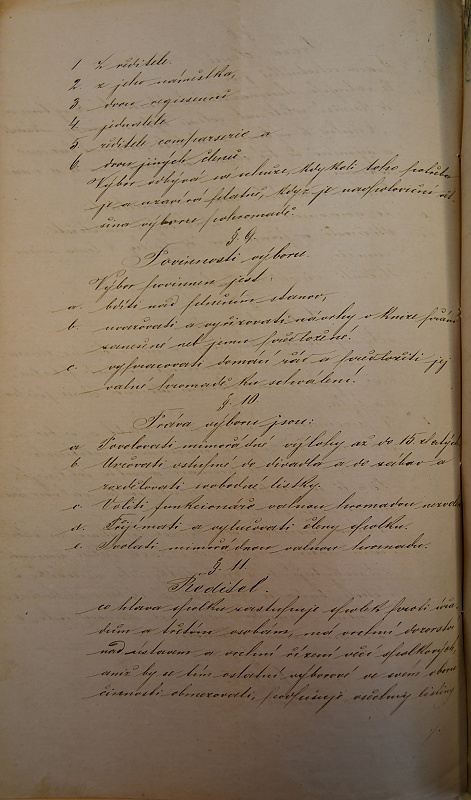 1 z ředitele
2. z jeho náměstka,
3. dvou regisseurů
4. jednatele
5 ředitele comparserie a
6. dvou jiných členů.
Výbor odbývá své schůze, kdykoli toho potřeba
je a uzavírá platně, když je nadpoloviční vět
šina výboru pohromadě.
§. 9.
Povinnosti výboru.
Výbor povinen jest:
a. bdíti nad plněním stanov,
b. uvažovati a vyřizovati návrhy v knize
zanesené neb jemu předložené.
c. vypracovati domácí řád a předložiti jej
valné hromadě ku schválení.
§. 10
Práva výboru jsou:
a. Povolovati mimořádné výlohy až do 15 zlatých
b. Určovati vstupné do divadla a do zábav a
rozdělovati svobodné lístky.
c. Voliti funkcionáře valnou hromadou
d. Přijímati a vylučovati členy spolku.
e. Svolati mimořádnou valnou hromadu.
§. 11.
Ředitel.
co hlava spolku zastupuje spolek proti úřa-
dům a třetím osobám, má vrchní dozorství
nad ústavem a vrchní řízení věcí spolkových,
aniž by se tím ostatní výborové ve svém oboru
činnosti obmezovali, podpisuje všechny listiny